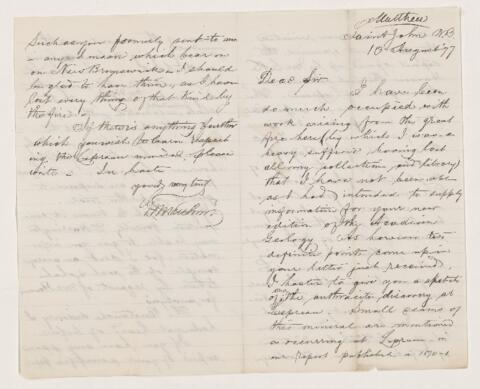 Matthew
Saint John NB
10 August 77
Dear Sir
I have been
so much occupied with
work arising from the great
fire here (by which I was a
heavy sufferer having lost
all my collection, and library)
that I have not been able
as I had intended to supply
information for your new
edition of the Acadian
Geology. As however two
definite points come up in
your letter just received,
I hasten to give you a sketch
of the anthracite discovery at
Lepreau. Small seams of
this mineral are mentioned
as occurring at Lepreau in
our report published in 1870-1
Such as you formerly sent to me
 any
 which bear on
on New Brunswick I should
be glad to have them, as I have
lost every thing of that kind by
the fire.
If there is anything further
which you wish to learn respect
ing the Lepreau mineral please
write. In haste
yours very truly